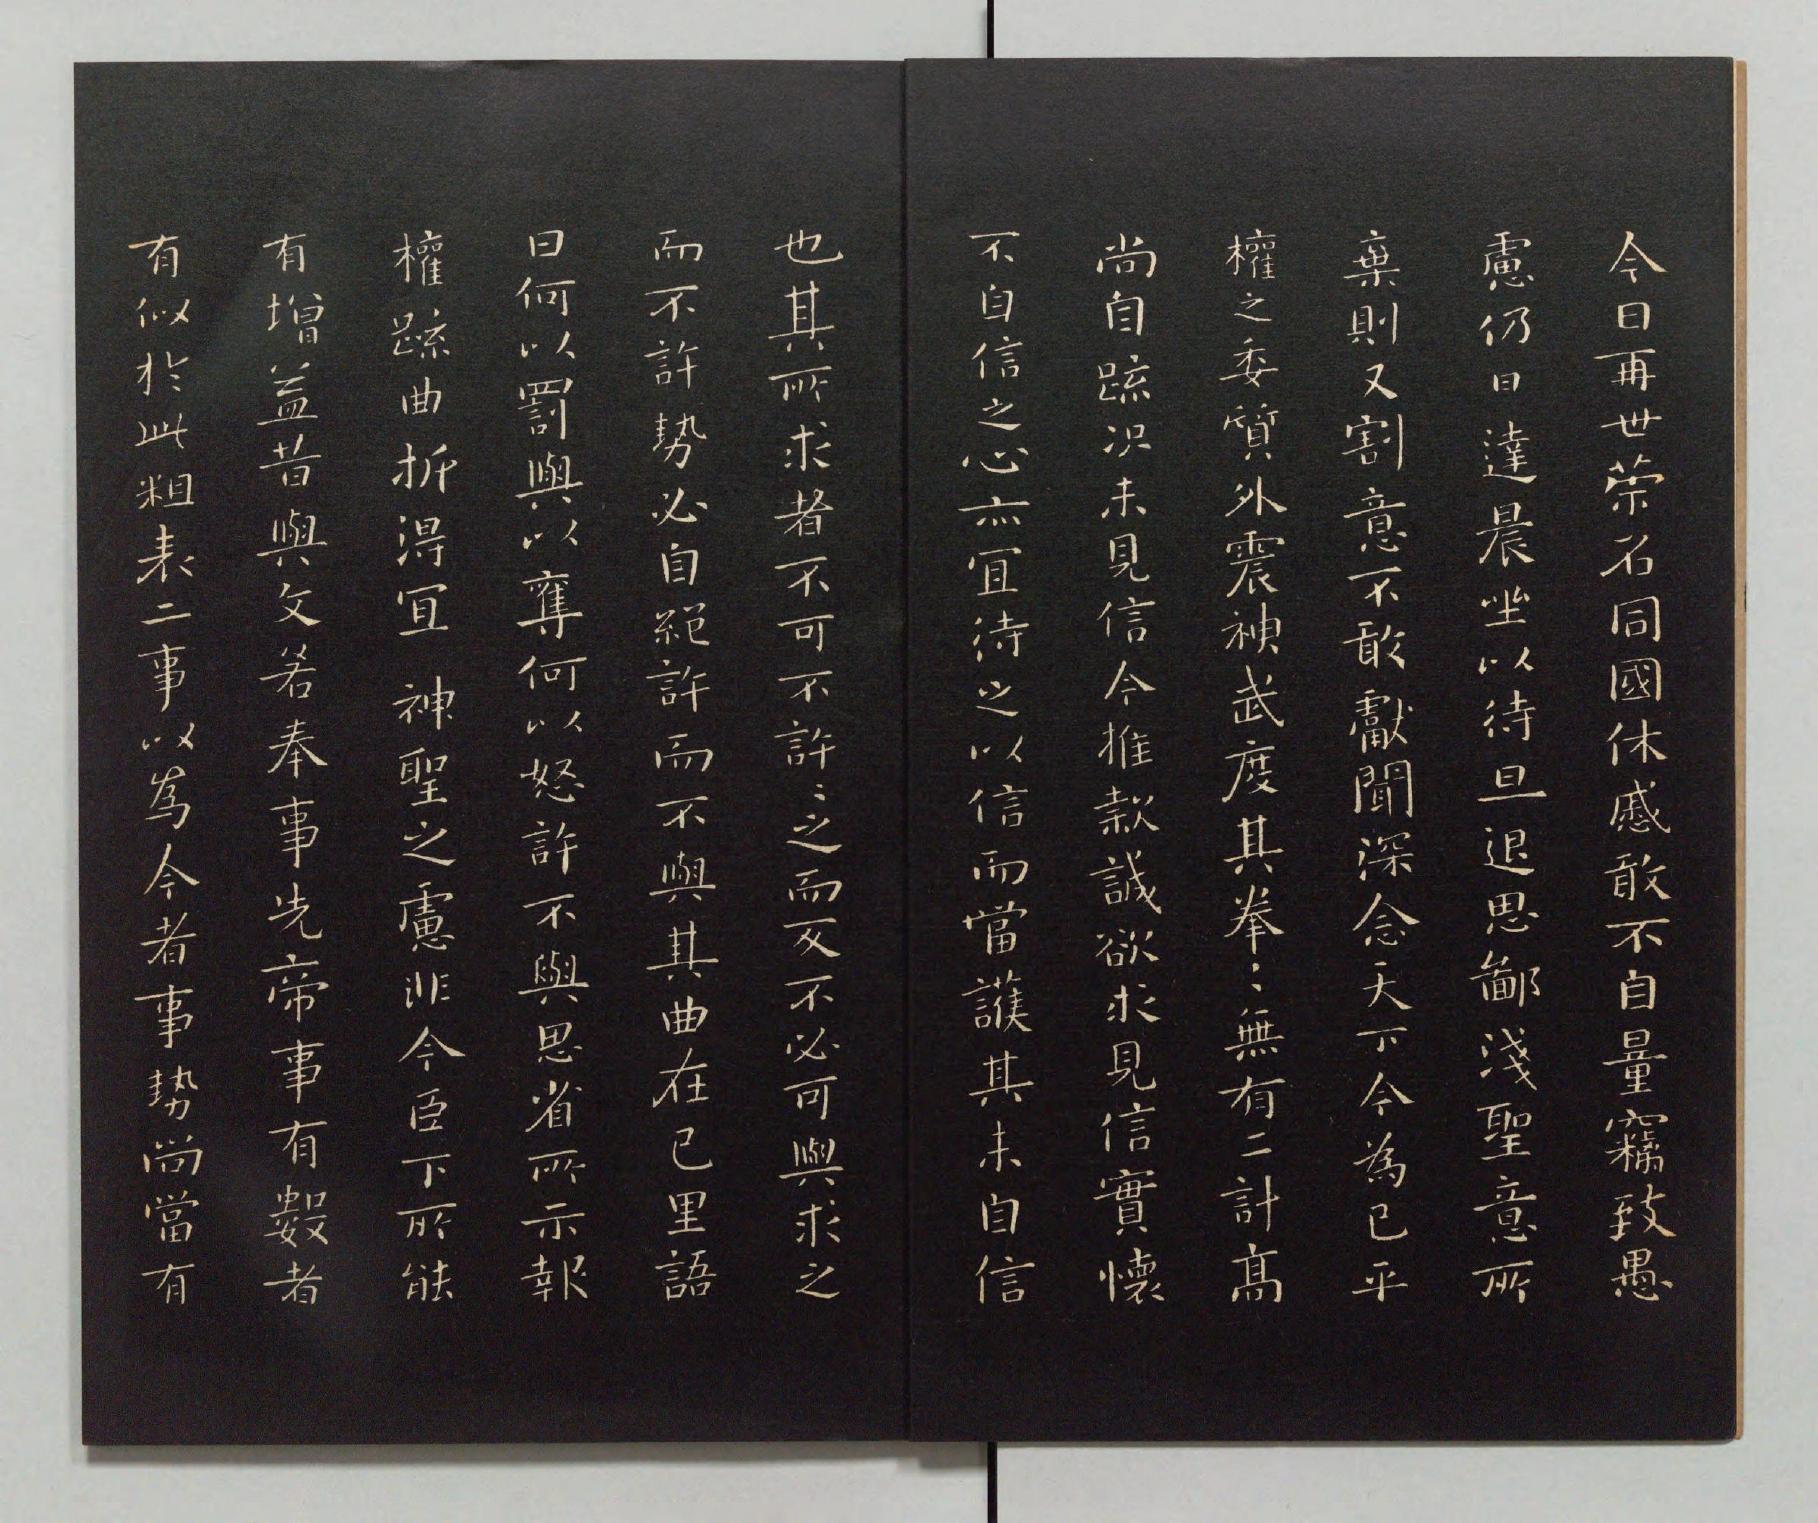 今日再世荣名同國休慼敢不自量竊致愚
慮仍日達晨坐以待旦退思鄙淺聖意所
棄則又割意不敢獻聞深念天下今為已平
權之委質外震神武度其拳〻無有二計高
尚自踈况未見信今推款誠欲求見信實懷
不自信之心亦宜待之以信而當護其未自信
也其所求者不可不許〻之而反不必可與求之
而不許勢必自絕許而不與其曲在己里語
曰何以罰與以奪何以怒許不與思省所示報
權踈曲折得宜 神聖之慮非今臣下所能
有增益昔與文若奉事先帝事有數者
有似於此粗表二事以為今者事勢尚當有